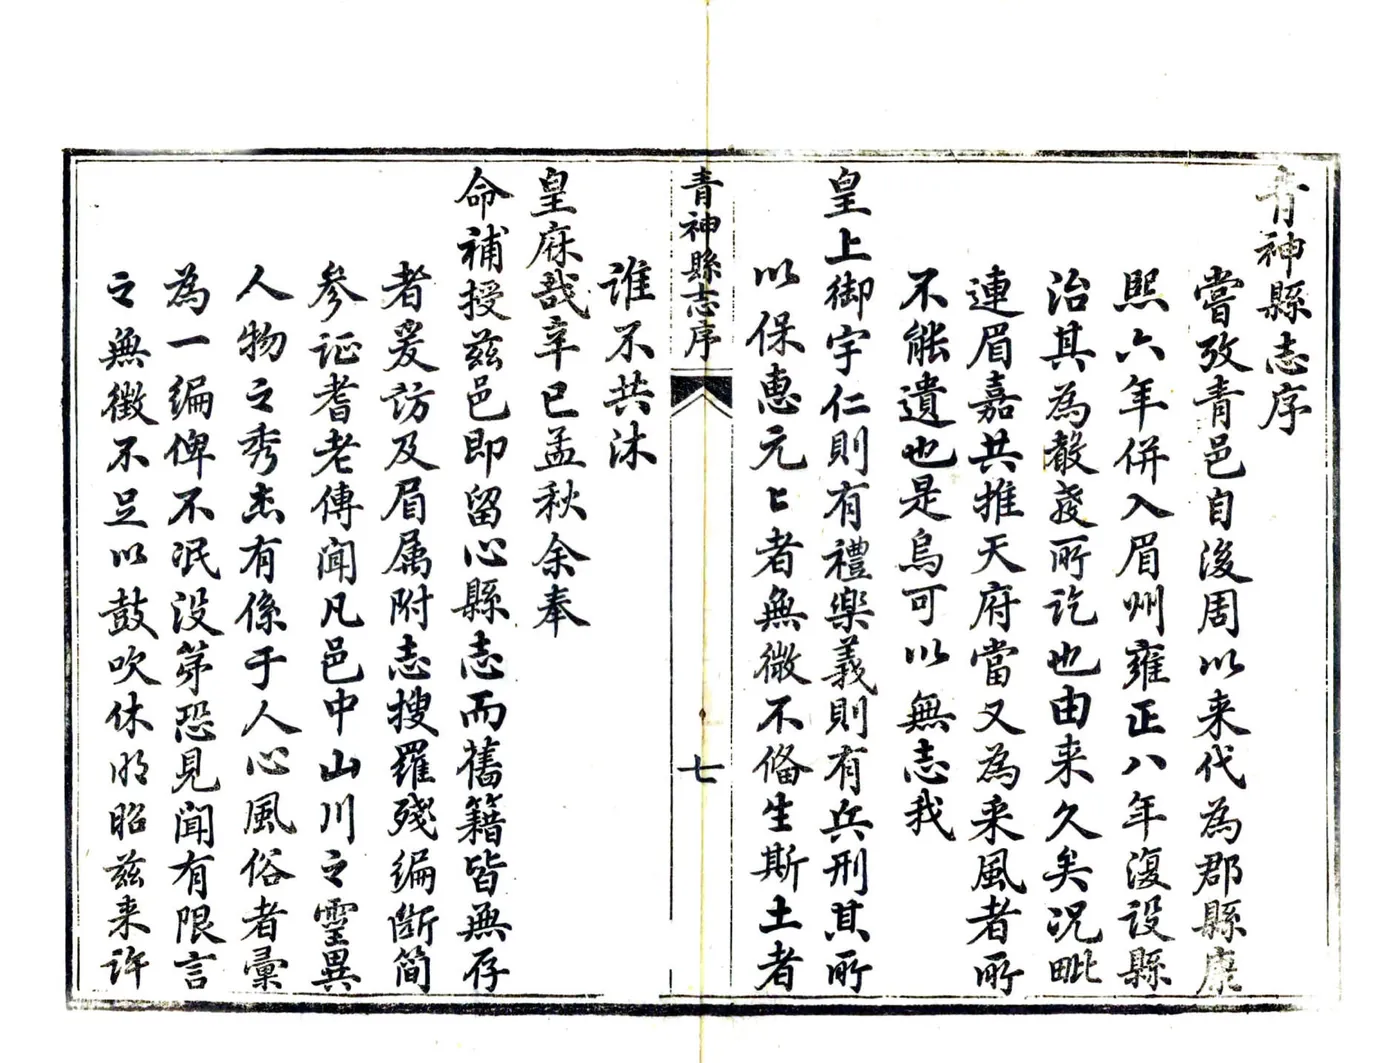 青神縣志序
嘗攷青邑自後周以来代為郡縣康
熙六年併入眉州雍正八年復設縣
治其為聲教所訖也由来久矣况毗
連眉嘉共推天府當又為采風者所
不能遺也是烏可以無志我
皇上御宇仁則有禮樂義則有兵刑其所
以保惠元〻者無微不俻生斯土者
青神縣志序
七
誰不共沐
皇庥哉辛巳孟秋余奉
命補授兹邑即留心縣志而舊籍皆無存
者爰訪及眉属附志搜羅殘編斷簡
參証耆老傳聞凡邑中山川之靈異
人物之秀杰有係于人心風俗者彙
為一編俾不泯没苐恐見聞有限言
之無徵不足以鼓吹休明昭兹来許